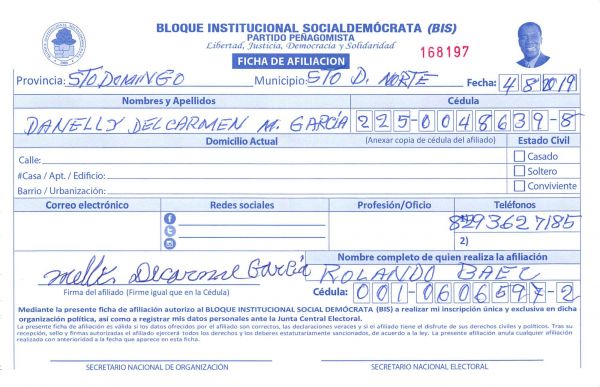 BLOQUE INSTITUCIONAL SOCIALDEMÓCRATA (BIS)
PARTIDO PEÑAGOMISTA
Libertad, Justicia, Democracia y Solidaridad
FICHA DE AFILIACION
168197
Provincia: STO DOMINGO Municipio: STO D. NORTE Fecha: 4 8 2019
Nombres y Apellidos Cédula
DANELLY DEL CARMEN M. GARCÍA 225-0048639-8
Domicilio Actual (Anexar copia de cédula del afiliado) Estado Civil
Calle: Casado
#Casa / Apt. / Edificio: Soltero
Barrio / Urbanización: Conviviente
Correo electrónico Redes sociales Profesión/Oficio Teléfonos
8293627185
2)
Nombre completo de quien realiza la afiliación
ROLANDO BAEZ
Firma del afiliado (Firme igual que en la Cédula) Cédula: 001-0606597-2
Mediante la presente ficha de afiliación autorizo al BLOQUE INSTITUCIONAL SOCIAL DEMÓCRATA (BIS) a realizar mi inscripción única y exclusiva en dicha
organización política, así como a registrar mis datos personales ante la Junta Central Electoral.
La presente ficha de afiliación es válida si los datos ofrecidos por el afiliado son correctos, las declaraciones veraces y si el afiliado tiene el disfrute de sus derechos civiles y políticos. Tras su
recepción, sello y firmas autorizadas el afiliado ejercerá todos los derechos y los deberes estatutariamente sancionados, de acuerdo a la ley. La presente afiliación anula cualquier afiliación
realizada con anterioridad a la fecha que aparece en esta ficha.
SECRETARIO NACIONAL DE ORGANIZACIÓN SECRETARIO NACIONAL ELECTORAL